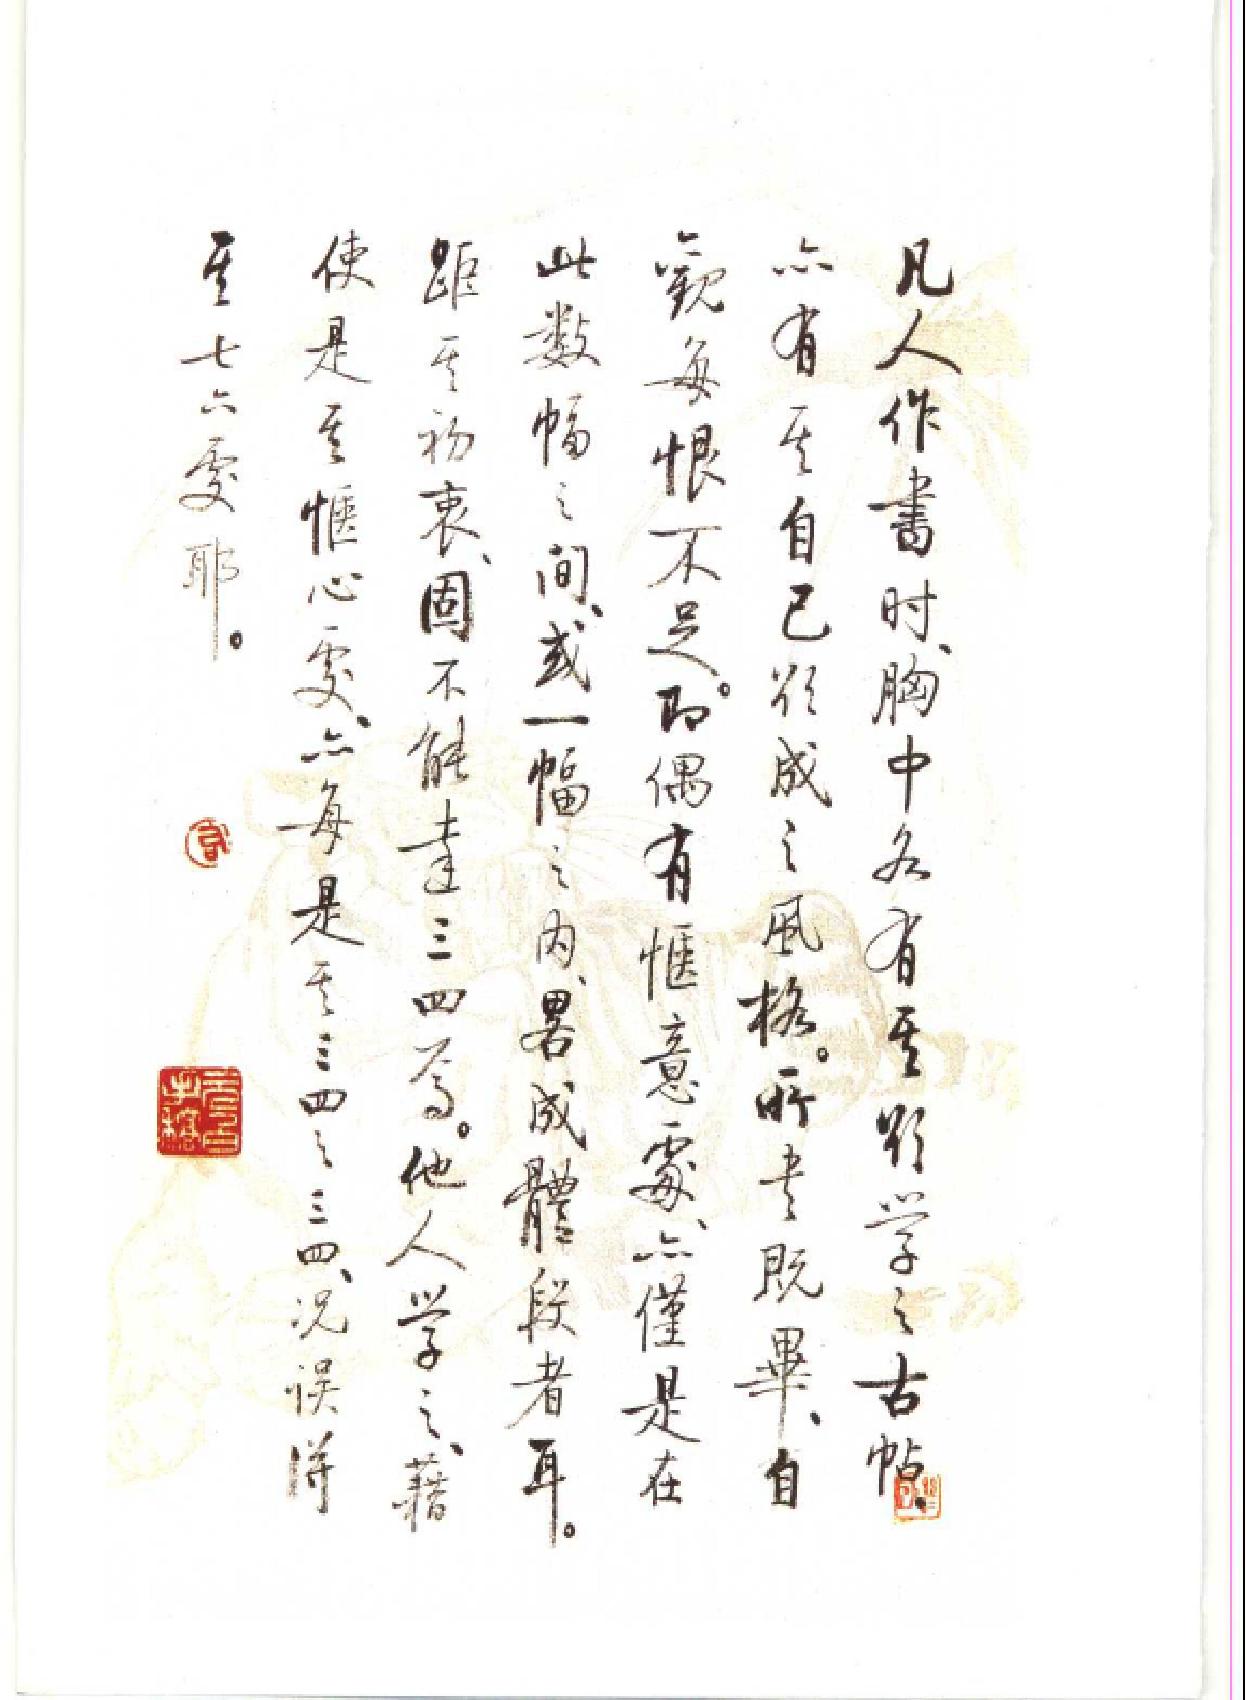 凡人作書时、胸中各有其欲学之古帖、
亦有其自己欲成之風格。所书既畢、自
觀每恨不足。即偶有惬意處、亦僅是在
此数幅之间、或一幅之内、畧成體段者耳。
距其初衷、固不能达三四焉。他人学之、藉
使是其惬心處、亦每是其三四之三四、况误得
其七六處耶。